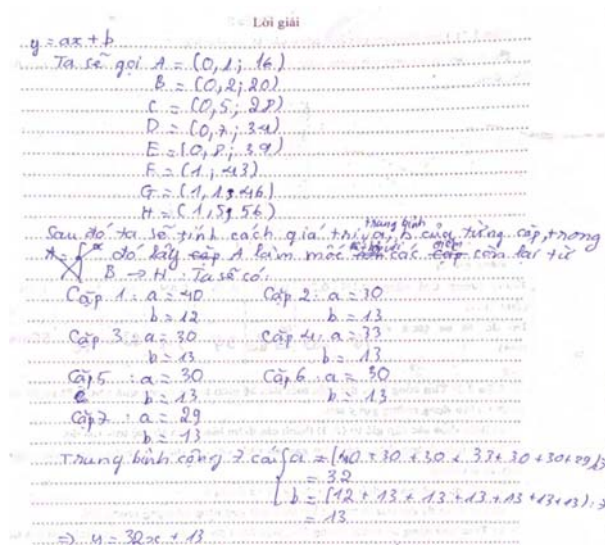 Lời giải
y = ax + b
Ta sẽ gọi A = (0,1; 16)
B = (0,2; 20)
C = (0,5; 28)
D = (0,7; 34)
E = (0,8; 39)
F = (1; 43)
G = (1,1; 46)
H = (1,5; 56)
trung bình
Sau đó ta sẽ tính cách giá trị a, b của từng cặp, trong
đó lấy A làm mốc các điểm còn lại từ
B → H. Ta sẽ có:
Cặp 1: a = 40 Cặp 2: a = 30
b = 12 b = 13
Cặp 3: a = 30 Cặp 4: a = 33
b = 13 b = 13
Cặp 5: a = 30 Cặp 6: a = 30
b = 13 b = 13
Cặp 7: a = 29
b = 13
Trung bình cộng 7 cái { a = (40 + 30 + 30 + 33 + 30 + 30 + 29):7
= 32
b = (12 + 13 + 13 + 13 + 13 + 13 + 13) : 7
= 13
⇒ y = 32x + 13